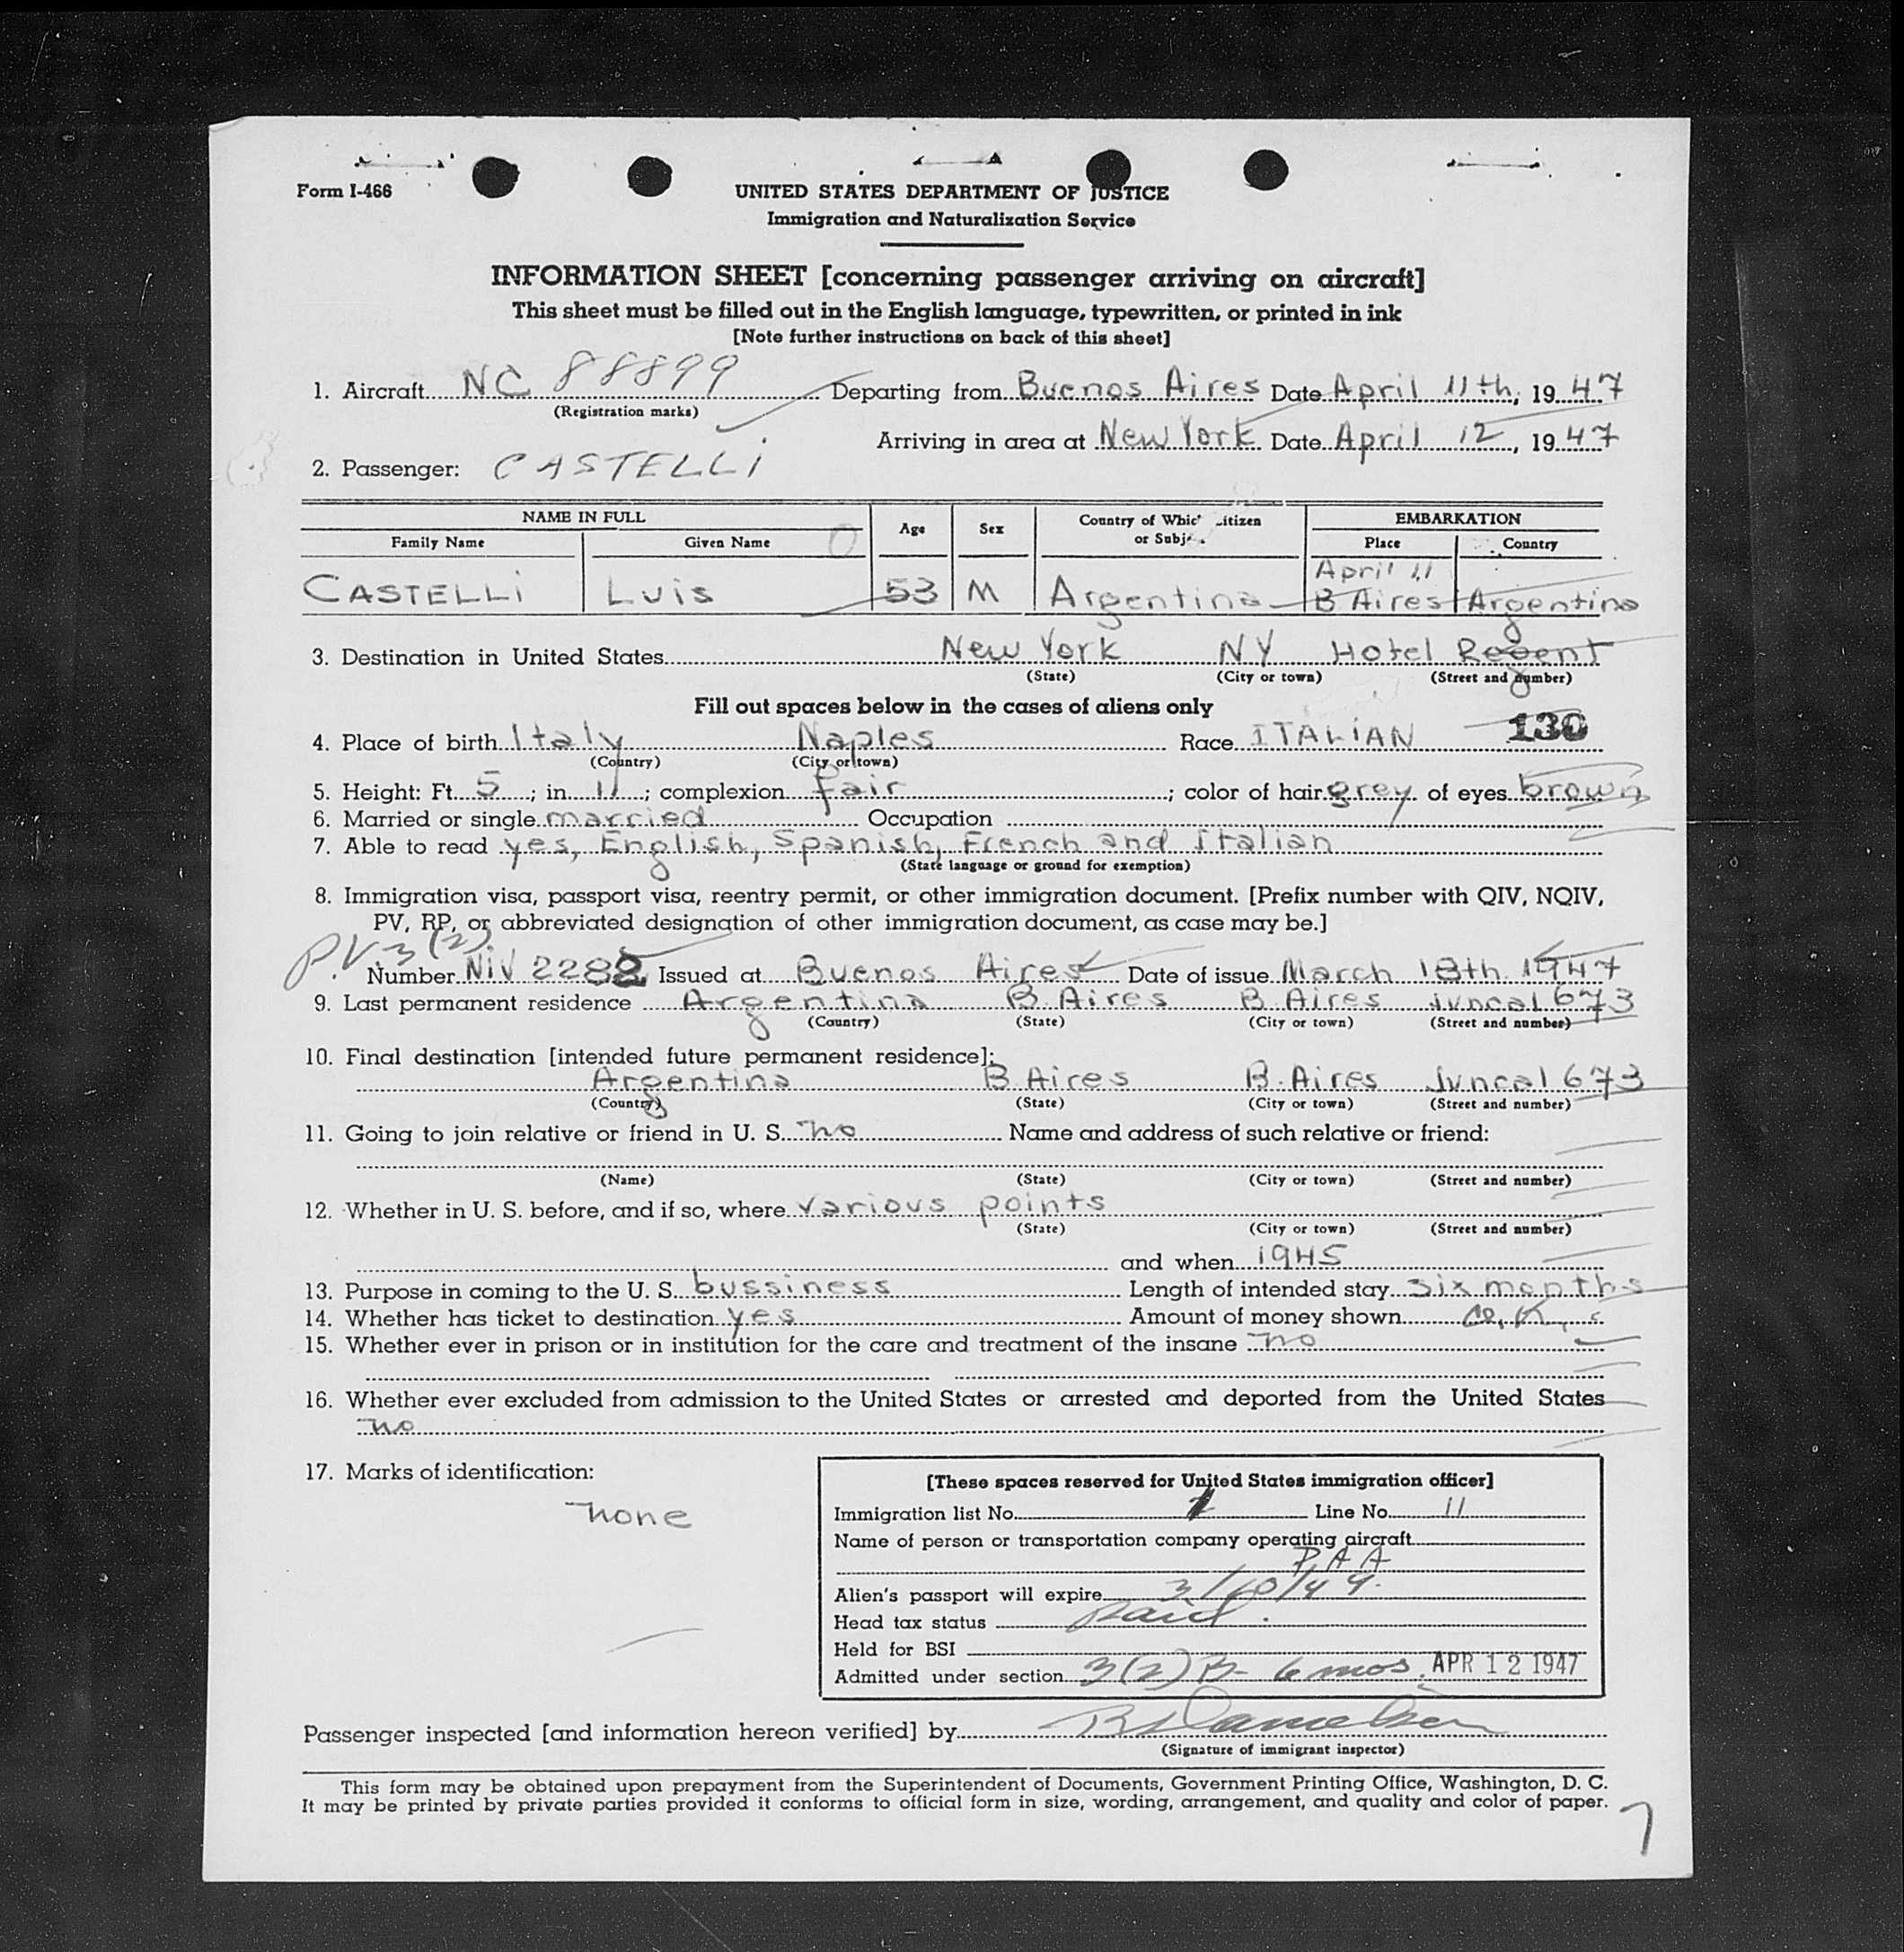 Form I-466
UNITED STATES DEPARTMENT OF JUSTICE
Immigration and Naturalization Service
INFORMATION SHEET [concerning passenger arriving on aircraft]
This sheet must be filled out in the English language, typewritten, or printed in ink
[Note further instructions on back of this sheet]
1. Aircraft NC 88899 Departing from Buenos Aires Date April 11th, 1947
(Registration marks)
Arriving in area at New York Date April 12, 1947
2. Passenger: CASTELLi
NAME IN FULL Age Sex Country of Which Citizen or Subject EMBARKATION
Family Name Given Name Place Country
April 11
CASTELLi Luis 53 M Argentina B Aires Argentina
3. Destination in United States New York NY Hotel Regent
(State) (City or town) (Street and number)
Fill out spaces below in the cases of aliens only
4. Place of birth Italy Naples Race ITALiAN 130
(Country) (City or town)
5. Height: Ft. 5; in. 11; complexion fair; color of hair grey of eyes brown
6. Married or single married Occupation
7. Able to read yes, English, Spanish, French and Italian
(State language or ground for exemption)
8. Immigration visa, passport visa, reentry permit, or other immigration document. [Prefix number with QIV, NQIV,
PV, RP, or abbreviated designation of other immigration document, as case may be.]
P.V. 3(2)
Number NIV 2282 Issued at Buenos Aires Date of issue March 18th 1947
9. Last permanent residence Argentina B. Aires B. Aires Juncal 673
(Country) (State) (City or town) (Street and number)
10. Final destination [intended future permanent residece]:
Argentina B. Aires B. Aires Juncal 673
(Country) (State) (City or town) (Street and number)
11. Going to join relative or friend in U. S. no Name and address of such relative or friend:
(Name) (State) (City or town) (Street and number)
12. Whether in U. S. before, and if so, where various points
(State) (City or town) (Street and number)
and when 1945
13. Purpose in coming to the U. S. bussiness Length of intended stay six months
14. Whether has ticket to destination yes Amount of money shown O.K.
15. Whether ever in prison or in institution for the care and treatment of the insane no
16. Whether ever excluded from admission to the United States or arrested and deported from the United States
no
17. Marks of identification:
none
[These spaces reserved for United States immigration officer]
Immigration list No. Line No. 11
Name of person or transportation company operating aircraft
PAA
Alien's passport will expire 3/10/49.
Head tax status Paid.
Held for BSI
Admitted under section 3(2) B- 6 mos. APR 12 1947
Passenger inspected [and information hereon verified] by
(Signature of immigrant inspector)
This form may be obtained upon prepayment from the Superintendent of Documents, Government Printing Office, Washington, D. C.
It may be printed by private parties provided it conforms to official form in size, wording, arrangement, and quality and color of paper.
7